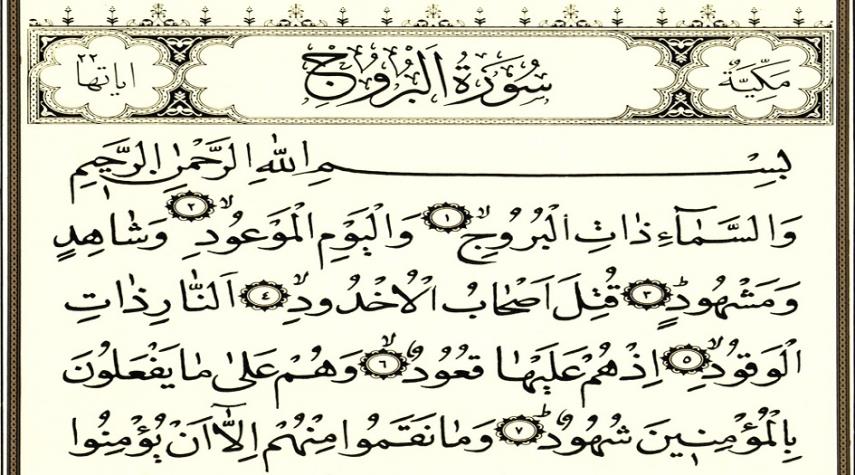 مَكِّيَّةٌ سُورَةُ الْبُرُوجِ اٰيَاتُهَا ٢٢
بِسْمِ اللّٰهِ الرَّحْمٰنِ الرَّحِيمِ
وَالسَّمَٓاءِ ذَاتِ الْبُرُوجِۙ ﴿١﴾ وَالْيَوْمِ الْمَوْعُودِۙ ﴿٢﴾ وَشَاهِدٍ
وَمَشْهُودٍۜ ﴿٣﴾ قُتِلَ اَصْحَابُ الْاُخْدُودِۙ ﴿٤﴾ اَلنَّارِ ذَاتِ
الْوَقُودِۙ ﴿٥﴾ اِذْ هُمْ عَلَيْهَا قُعُودٌۙ ﴿٦﴾ وَهُمْ عَلٰى مَا يَفْعَلُونَ
بِالْمُؤْمِنِينَ شُهُودٌۜ ﴿٧﴾ وَمَا نَقَمُوا مِنْهُمْ اِلَّٓا اَنْ يُؤْمِنُوا